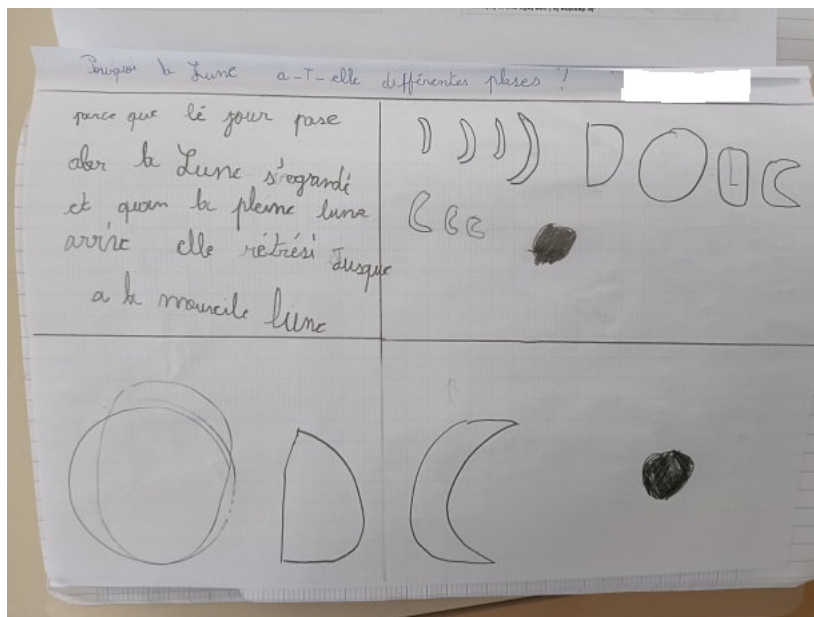 Pourquoi la Lune a-T-elle différentes phases ?
parce que lé jour pase
alor la Lune s'egrandi
et quan la pleine lune
arrive elle rétrési Jusque
a la nouvelle lune